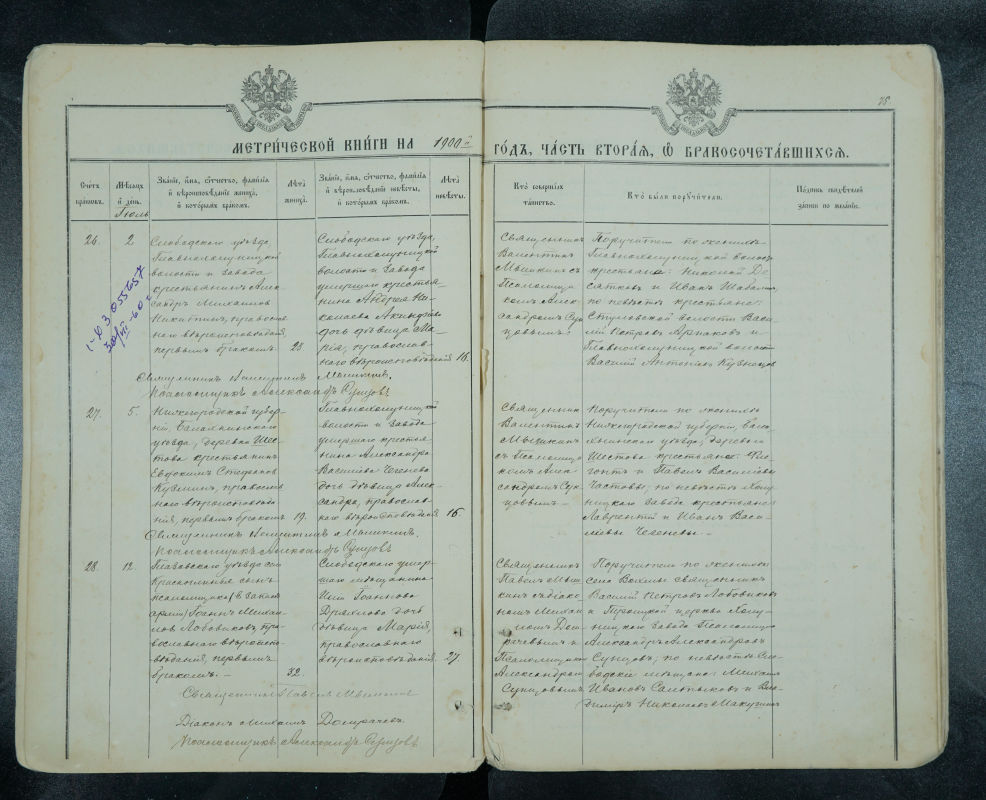 75
МЕТРИ́ЧЕСКОЙ КНИ́ГИ НА 1900й
ГО́ДЪ, ЧА́СТЬ ВТОРА́Я, Ѿ БРАКОСОЧЕТА́ВШИХСѦ.
Счетъ браковъ.
Мѣсяцъ и день.
Іюль
Званіе, имя, отчество, фамилія и вѣроисповѣданіе жениха, и которымъ бракомъ.
Лѣта жениха.
Званіе, имя, отчество, фамилія и вѣроисповѣданіе невѣсты, и которымъ бракомъ.
Лѣта невѣсты.
Кто совершалъ таинство.
Кто были поручители.
Подпись свидѣтелей записи по желанію.
26.
2
Слободскаго уѣзда,
Главнохолуницкой
волости и завода
крестьянинъ Алек-
сандръ Михаиловъ
православ-
наго вѣроисповѣданія,
первымъ бракомъ
23
Слободскаго уѣзда,
Главнохолуницкой
волости и завода
умершаго крестья-
нина Андрея Ни-
колаева
дочь дѣвица Ма-
рія, православ-
наго вѣроисповѣданія
18.
Священникъ
Валентинъ
Мышкинъ съ
Псаломщи-
комъ Алек-
сандромъ Сун-
цовымъ.
Поручители по женихѣ
Главнохолуницкой волости
крестьяне: Николай Де-
сятковъ и Иванъ
по невѣстѣ крестьяне:
волости Васи-
лій Петровъ и
Главнохолуницкой волости
Василій Антоніевъ Кузнецов
Священникъ Валентинъ Мышкинъ.
Псаломщикъ Александръ Сунцовъ
27.
5.
Нижегородской губер-
ніи, Балахнинскаго
уѣзда, деревни Шес-
това крестьянинъ
Евдокимъ Стефановъ
Кузминъ, православ-
наго вѣроисповѣда-
нія, первымъ бракомъ
19.
Главнохолуницкой
волости и завода
умершаго крестья-
нина Александра
Василіева Чегенева
дочь дѣвица Алек-
сандра, православ-
наго вѣроисповѣданія
16
Священникъ
Валентинъ
Мышкинъ
съ Псаломщи-
комъ Алек-
сандромъ Сун-
цовымъ.
Поручители по женихѣ
Нижегородской губерніи, Бала-
хнинскаго уѣзда, деревни
Шестова крестьяне:
и Павелъ Василіевы
Частовы; по невѣстѣ Холу-
ницкаго завода крестьяне
Лаврентій и Иванъ Васи-
ліевы Чегеневы.
Священникъ Валентинъ Мышкинъ.
Псаломщикъ Александръ Сунцовъ
28.
12.
Глазовскаго уѣзда села
Красноглинья сынъ
псаломщика
Іоаннъ Михаи-
ловъ Лобовиковъ, пра-
вославнаго вѣроиспо-
вѣданія, первымъ
бракомъ.
32.
Слободскаго умер-
шаго мѣщанина
Іоаннова
дочь
дѣвица Марія,
православнаго
вѣроисповѣданія
27.
Священникъ
Павелъ Мыш-
кинъ съ діако-
номъ Михаи-
ломъ Дом-
рачевымъ и
Псаломщикомъ
Александромъ
Сунцовымъ
Поручители по женихѣ
села священникъ
Василій Петровъ Лобовиковъ
и Троицкой церкви Холу-
ницкаго завода Псаломщикъ
Александръ Александровъ
Сунцовъ; по невѣстѣ Сло-
бодскіе мѣщане: Михаилъ
Ивановъ Салтыковъ и Вла-
димиръ Николаевъ Макушинъ
Священникъ Павелъ Мышкинъ
Діаконъ Михаилъ Домрачевъ
Псаломщикъ Александръ Сунцовъ